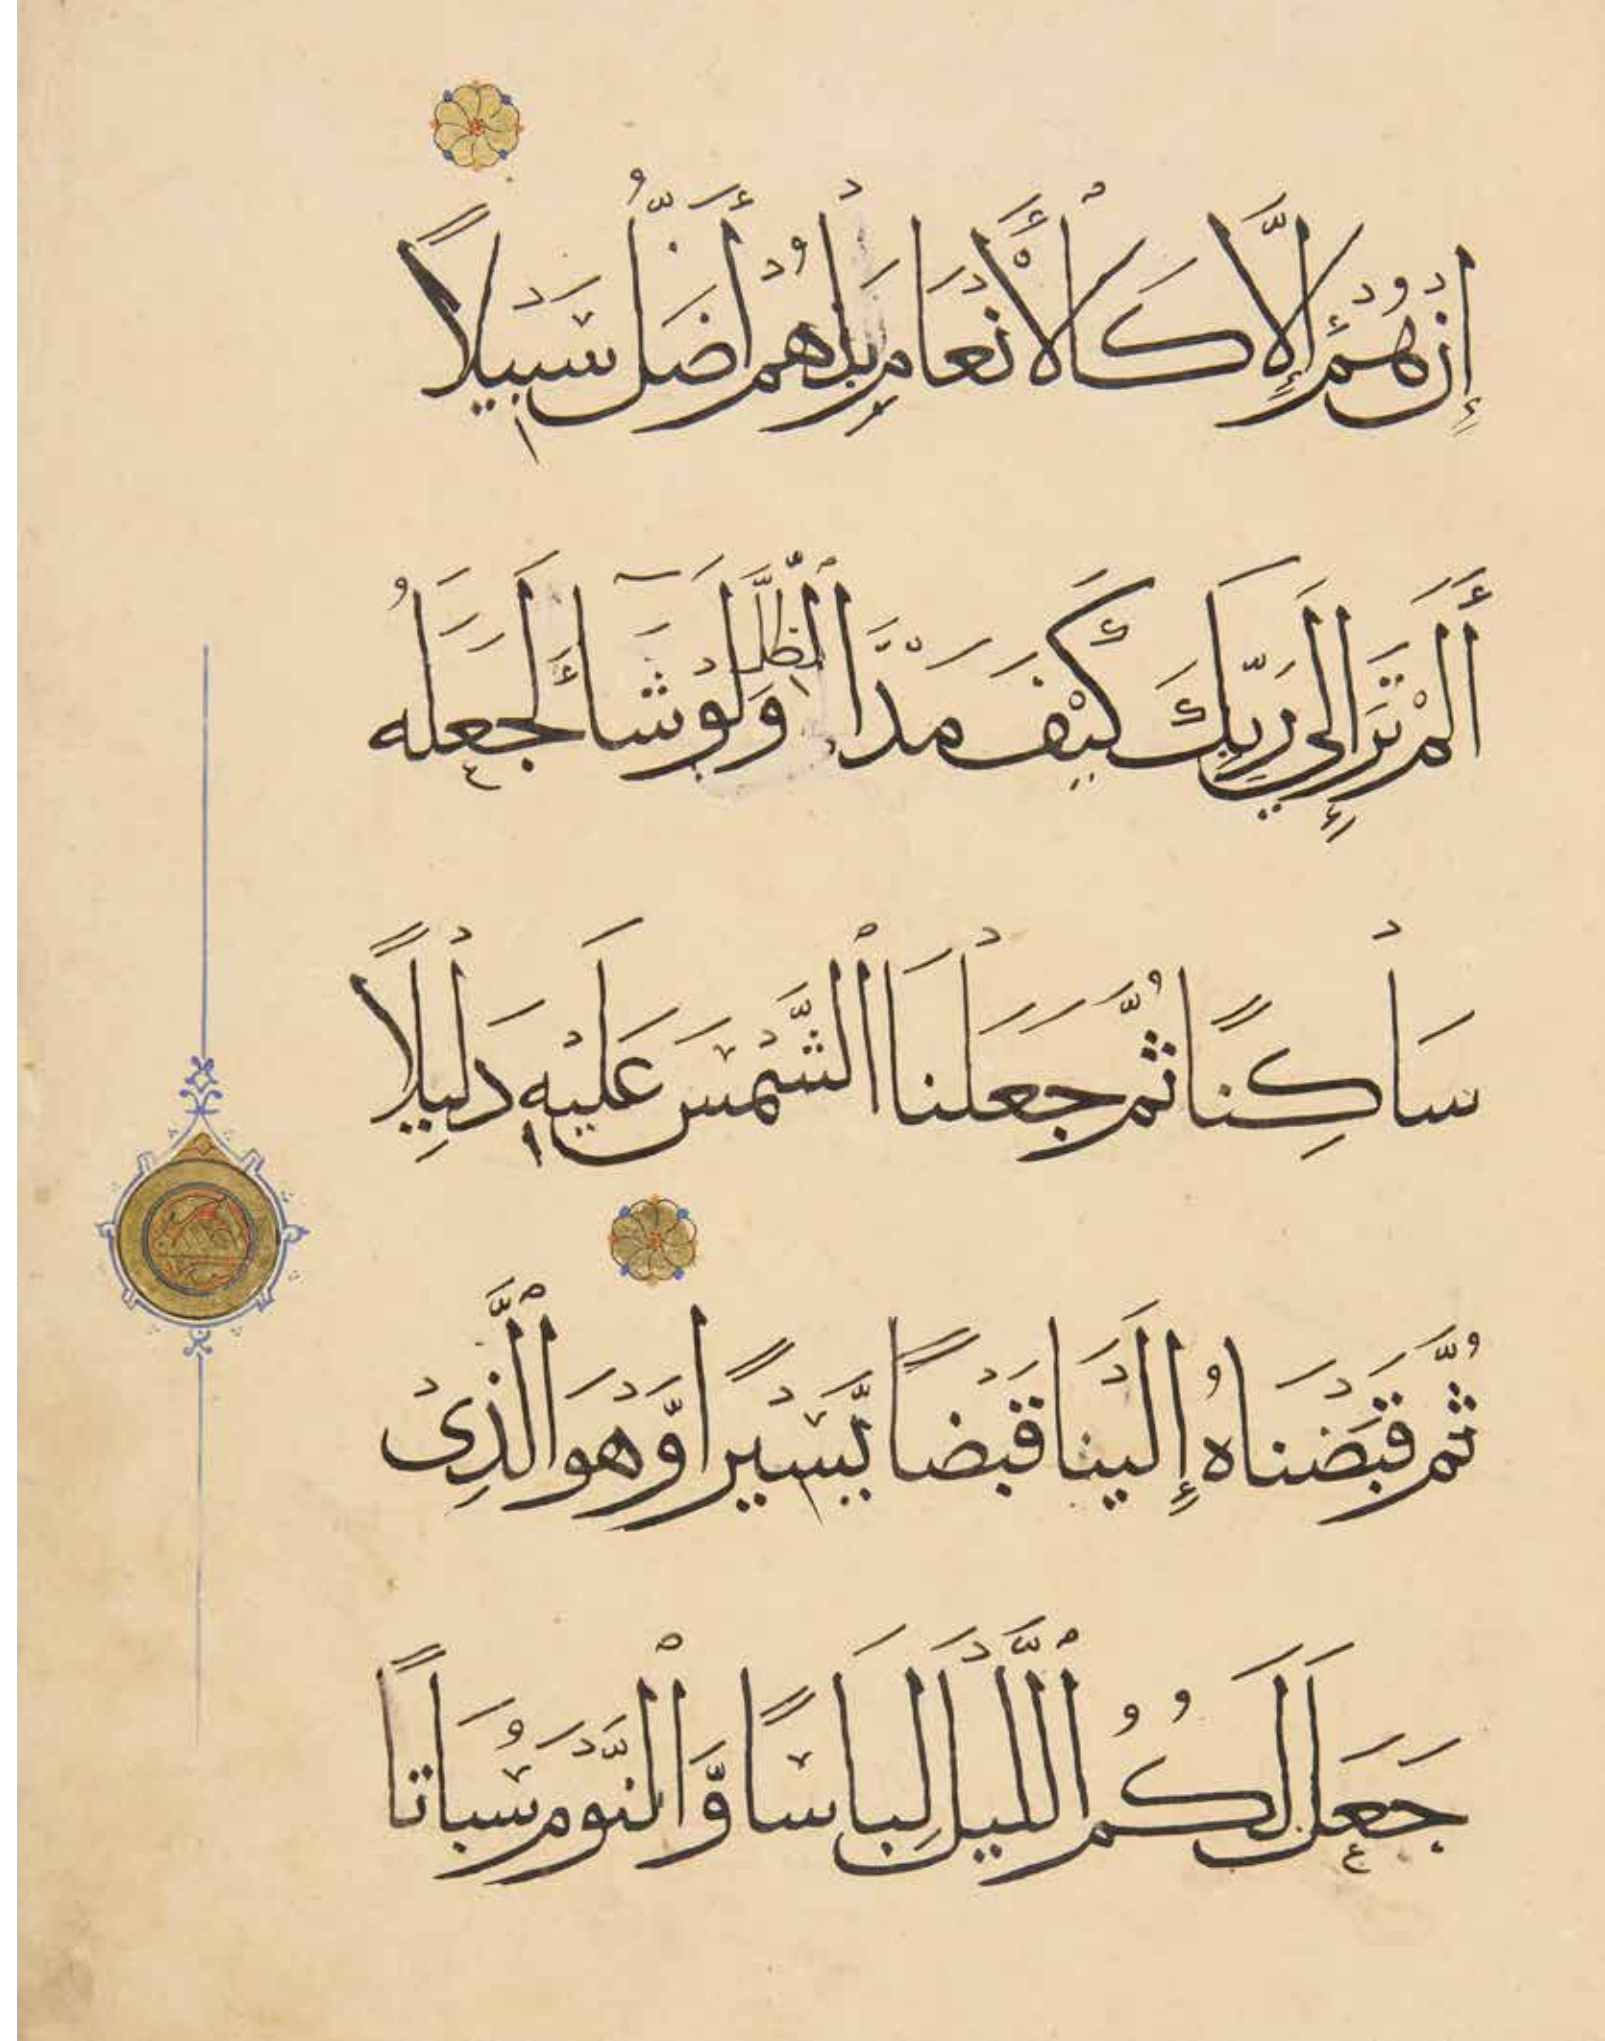 إِنْ هُمْ إِلَّا كَالْأَنْعَامِ بَلْ هُمْ أَضَلُّ سَبِيلًا
أَلَمْ تَرَ إِلَى رَبِّكَ كَيْفَ مَدَّ الظِّلَّ وَلَوْ شَاءَ لَجَعَلَهُ
سَاكِنًا ثُمَّ جَعَلْنَا الشَّمْسَ عَلَيْهِ دَلِيلًا
ثُمَّ قَبَضْنَاهُ إِلَيْنَا قَبْضًا يَّسِيرًا وَّهُوَ الَّذِى
جَعَلَ لَكُمُ اللَّيْلَ لِبَاسًا وَّالنَّوْمَ سُبَاتًا